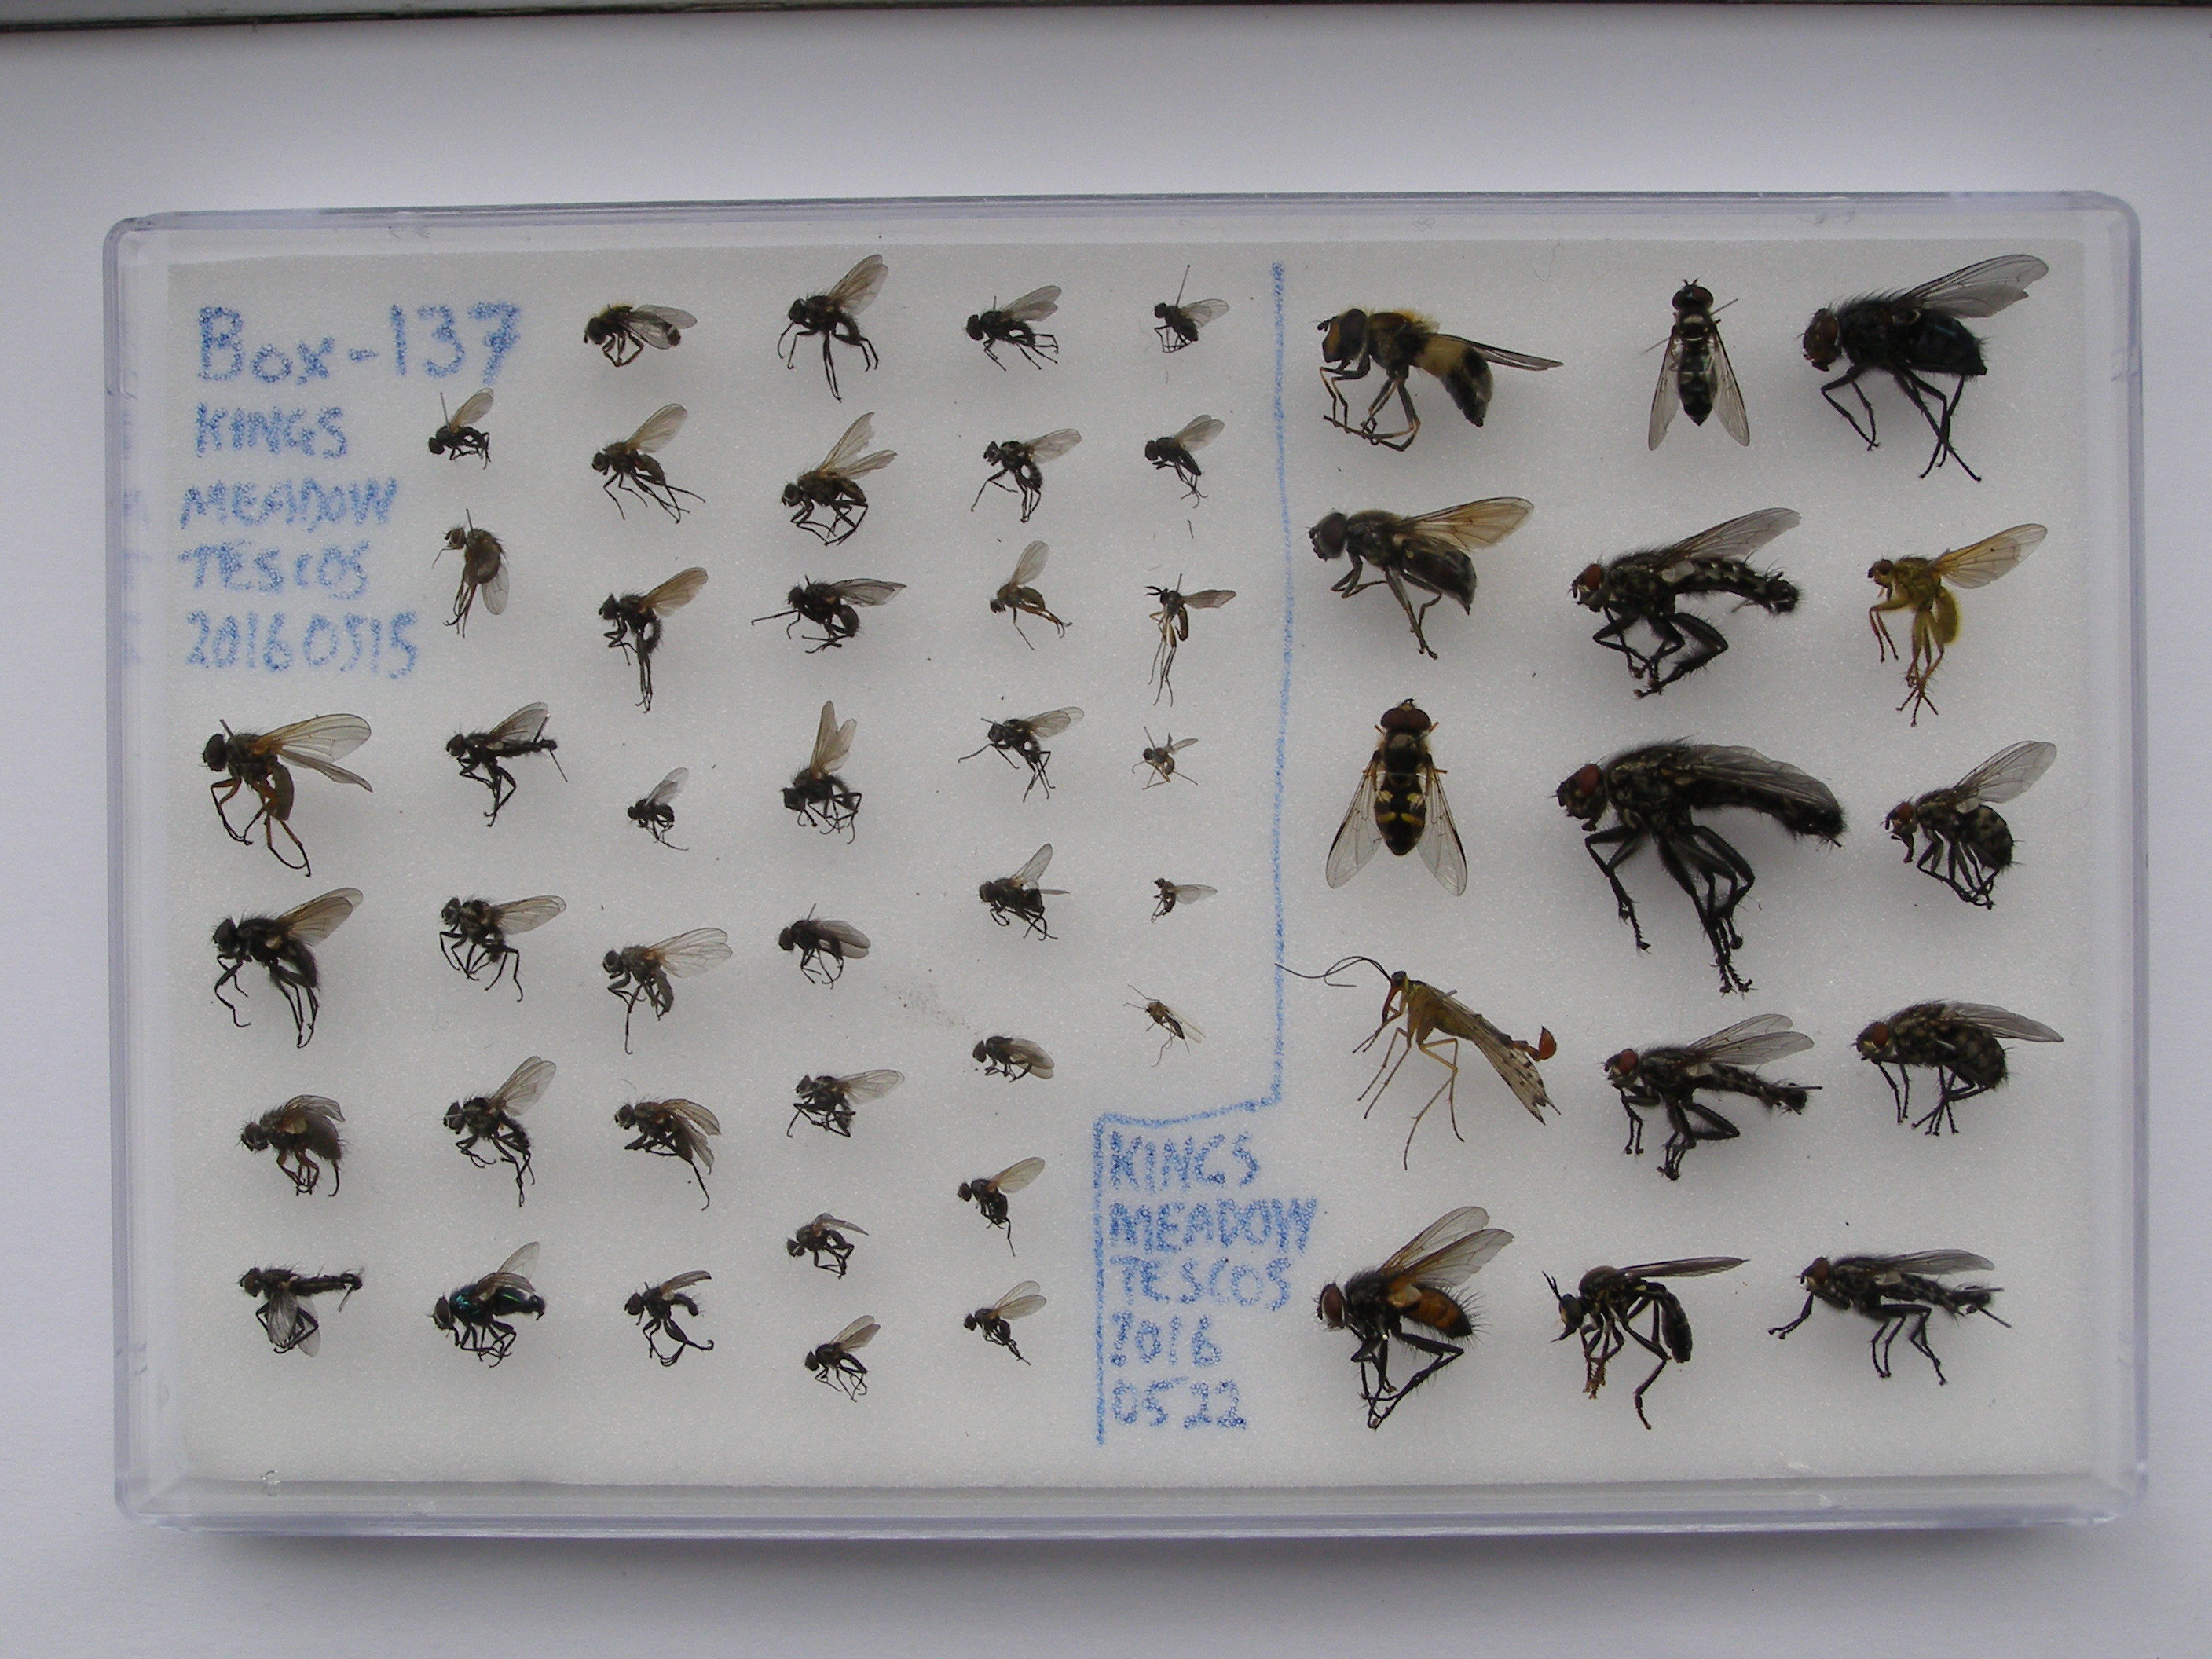 Box-137
KINGS
MEADOW
TESCOS
20160515
KINGS
MEADOW
TESCOS
2016
0522